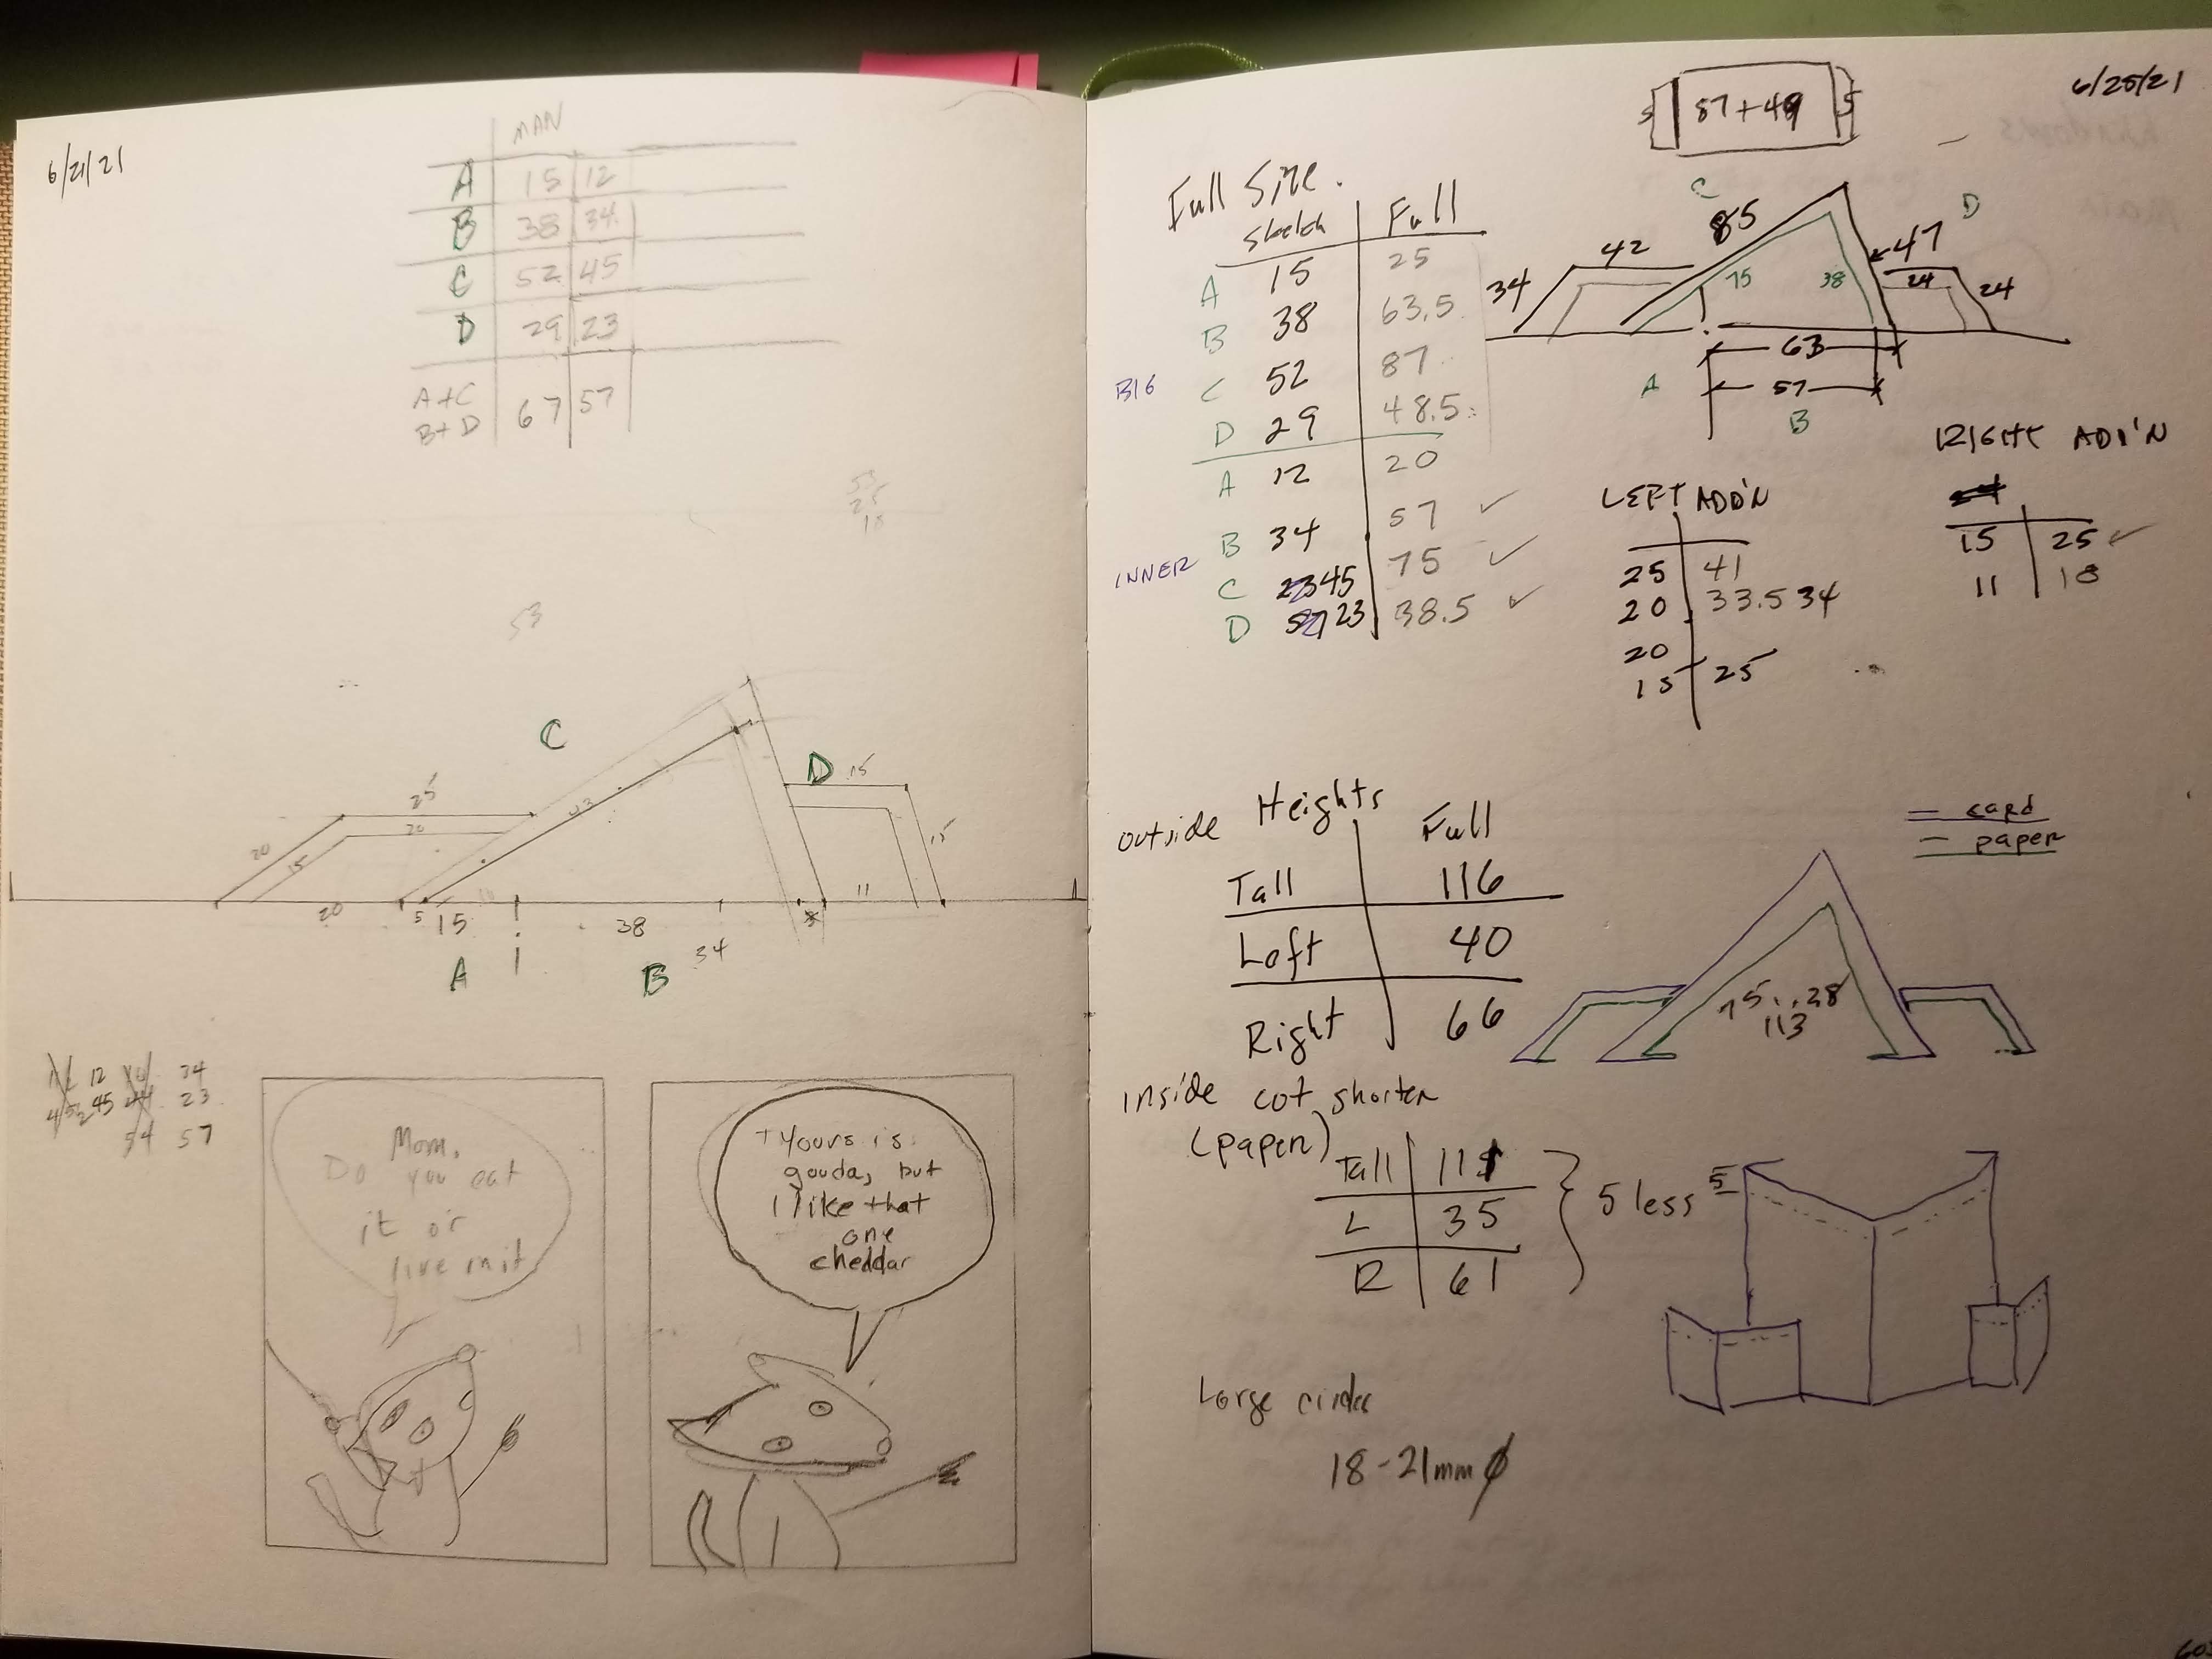 6/21/21
MAN
A 15 12
B 38 34
C 52 45
D 29 23
A+C
B+D 67 57
53
25
18
53
C
D 15
25
20
20
15
15
20
5 15
38
11
34
A
B
12 34
45 23
54 57
Mom,
Do you eat
it or
live in it
Yours is
gouda, but
I like that
one
cheddar
6/25/21
5 87+49 5
Full Size.
Sketch Full
A 15 25
B 38 63.5
BIG
C 52 87
D 29 48.5
A 12 20
B 34 57 ✓
INNER
C 45 75 ✓
D 23 38.5 ✓
C
85
D
42
47
34
75
38
24
24
63
A
57
B
LEFT ADD'N
25 41
20 33.5 34
20
15 25
RIGHT ADD'N
15 25 ✓
11 18
outside Heights
Full
Tall 116
Left 40
Right 66
card
paper
75
113
inside cut shorter
(paper)
Tall 111
L 35
R 61
5 less
5
Large circles
18-21mm ø